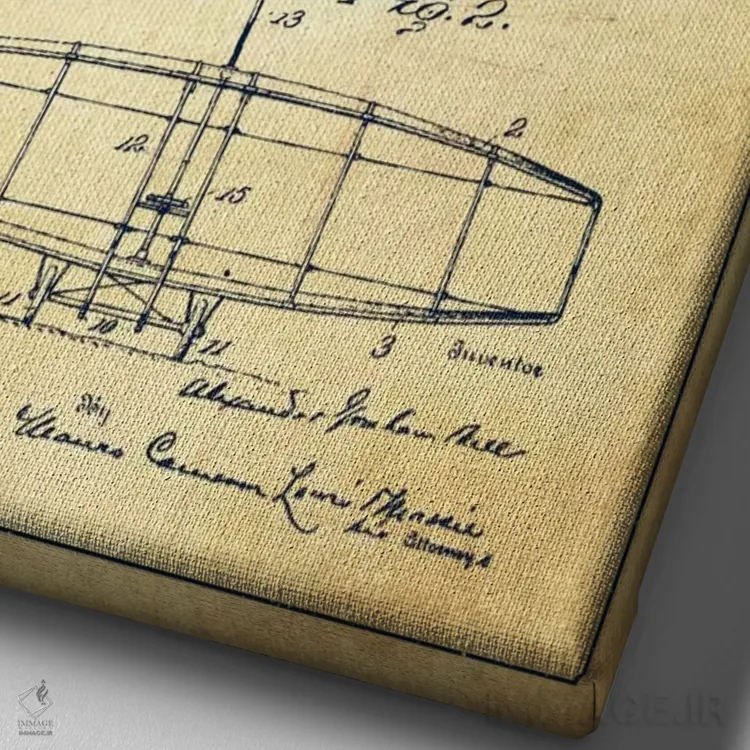 13
No. 2.
2
12
15
10
11
3
Inventor
Alexander Graham Bell
By
Mauro Cameron Lewis Massie
Attorneys
IMMAGE
IMMAGE.IR
IMMAGE.IR